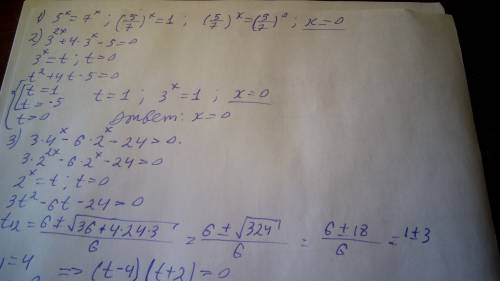 1) 5^x = 7^x ; (5/7)^x = 1 ; (5/7)^x = (5/7)^0 ; x=0
2) 3^2x + 4·3^x - 5 = 0
3^x = t ; t>0
t^2 + 4t - 5 = 0
t=1
t=-5
t>0
t=1 ; 3^x = 1 ; x=0
Ответ: x=0
3) 3·4^x - 6·2^x - 24 > 0.
3·2^2x - 6·2^x - 24 > 0
2^x = t ; t>0
3t^2 - 6t - 24 > 0
t12 = (6 ± √(36+4·24·3))/6 = (6 ± √324)/6 = (6 ± 18)/6 = 1±3
=4 ⇒ (t-4)(t+2) > 0